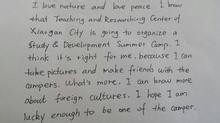 I love nature and love peace. I know
that Teaching and Researching Center of
Xiaogan City is going to organize a
Study & Development Summer Camp. I
think it's right for me, because I can
take pictures and make friends with the
campers. What's more, I can know more
about foreign cultures. I hope I am
lucky enough to be one of the camper.